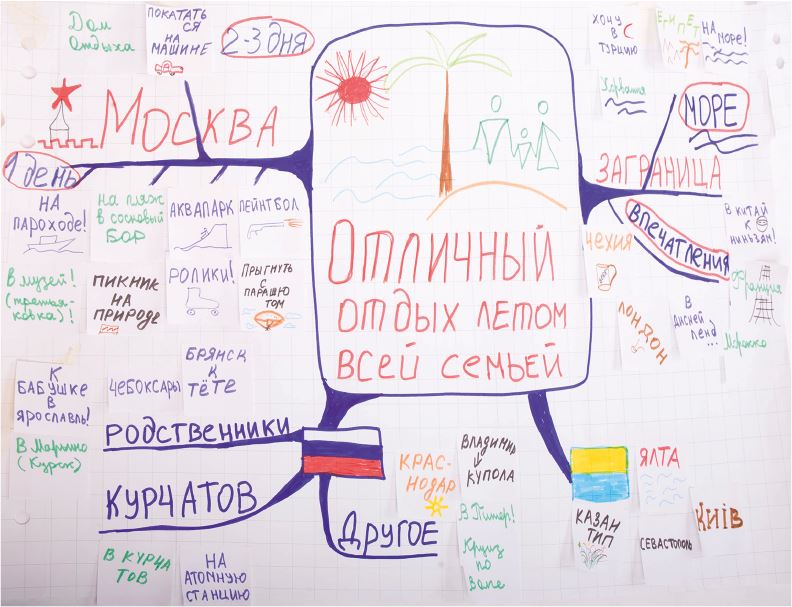 Дом
отдыха
ПОКАТАТЬ
СЯ
НА
МАШИНЕ
2-3 ДНЯ
МОСКВА
1 ДЕНЬ
НА
ПАРОХОДЕ!
НА ПЛЯЖ
В СОСНОВЫЙ
БОР
АКВАПАРК
ПЕЙНТБОЛ
В МУЗЕЙ!
(третья-
ковка)!
ПИКНИК
НА
ПРИРОДЕ
РОЛИКИ!
ПРЫГНУТЬ
С
ПАРАШЮ
ТОМ
ОТЛИЧНЫЙ
ОТДЫХ ЛЕТОМ
ВСЕЙ СЕМЬЕЙ
ХОЧУ
В
ТУРЦИЮ
ЕГИПЕТ
НА
МОРЕ!
Хорватия
МОРЕ
ЗАГРАНИЦА
ВПЕЧАТЛЕНИЯ
ЧЕХИЯ
В КИТАЙ
К
НИНЬЗЯМ!
ЛОНДОН
В
ДИСНЕЙ
ЛЕНД...
Франция
Марокко
К
БАБУШКЕ
В
ЯРОСЛАВЛЬ!
ЧЕБОКСАРЫ
БРЯНСК
К
ТЁТЕ
В Марьино
(Курск)
РОДСТВЕННИКИ
КУРЧАТОВ
В КУРЧА
ТОВ
НА
АТОМНУЮ
СТАНЦИЮ
ДРУГОЕ
КРАС-
НОДАР
ВЛАДИМИР
КУПОЛА
В Питер!
Круиз
по
Волге
ЯЛТА
КАЗАН
ТИП
СЕВАСТОПОЛЬ
КИЇВ